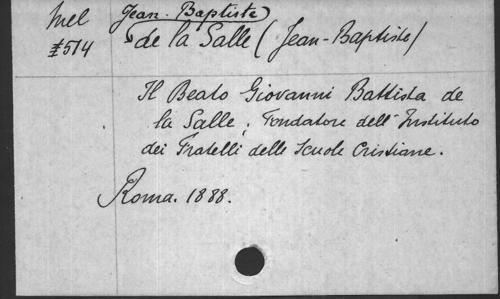 Mel Jean-Baptiste
I 514 de la Salle (Jean-Baptiste)
Il Beato Giovanni Battista de
la Salle, Fondatore dell'Instituto
dei Fratelli delle Scuole Cristiane.
Roma. 1888.